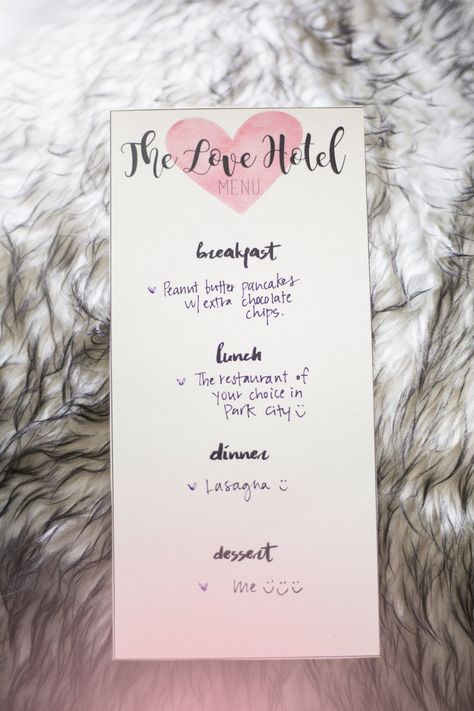 The Love Hotel
MENU
breakfast
Peanut butter pancakes
w/ extra chocolate
chips.
lunch
The restaurant of
your choice in
Park City
dinner
Lasagna
dessert
Me